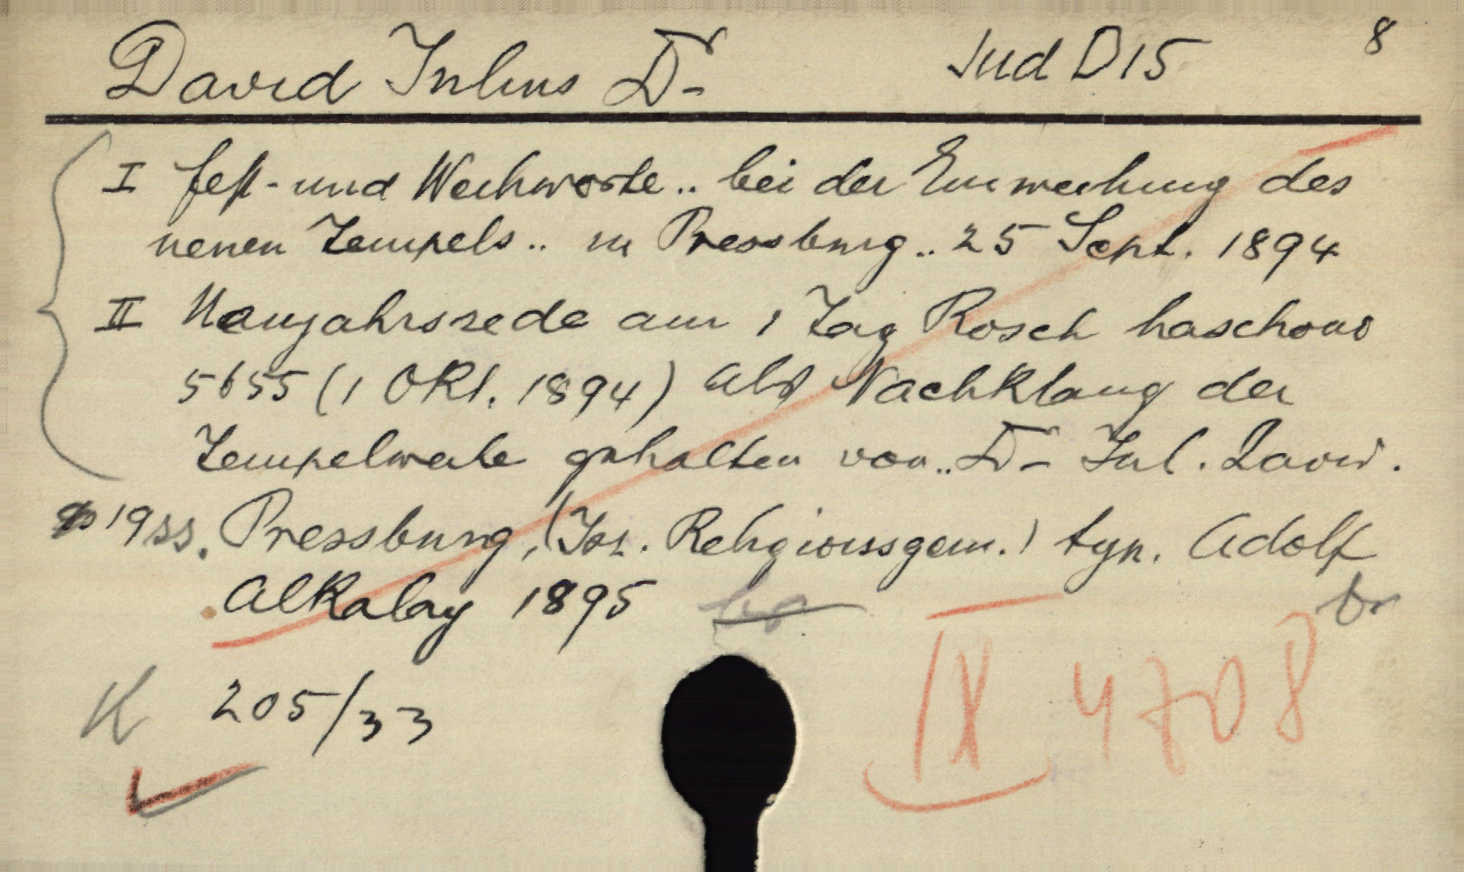 David Julius Dr Jud D15 8
I Fest- und Weihworte .. bei der Einweihung des
neuen Tempels .. in Pressburg .. 25 Sept. 1894
II Neujahrsrede am 1 Tag Rosch haschono
5655 (1 Okt. 1894) als Nachklang der
Tempelweihe gehalten von .. Dr Jul. David.
19 SS. Pressburg, (Isr. Religionsgem.) typ. Adolf
Alkalay 1895 br
K 205/33
IX 4708